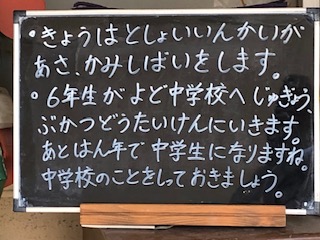 ・きょうはとしょいいんかいが
あさ、かみしばいをします。
・6年生がよど中学校へじゅぎょう、
ぶかつどうたいけんにいきます。
あとはん年で中学生になりますね。
中学校のことをしっておきましょう。